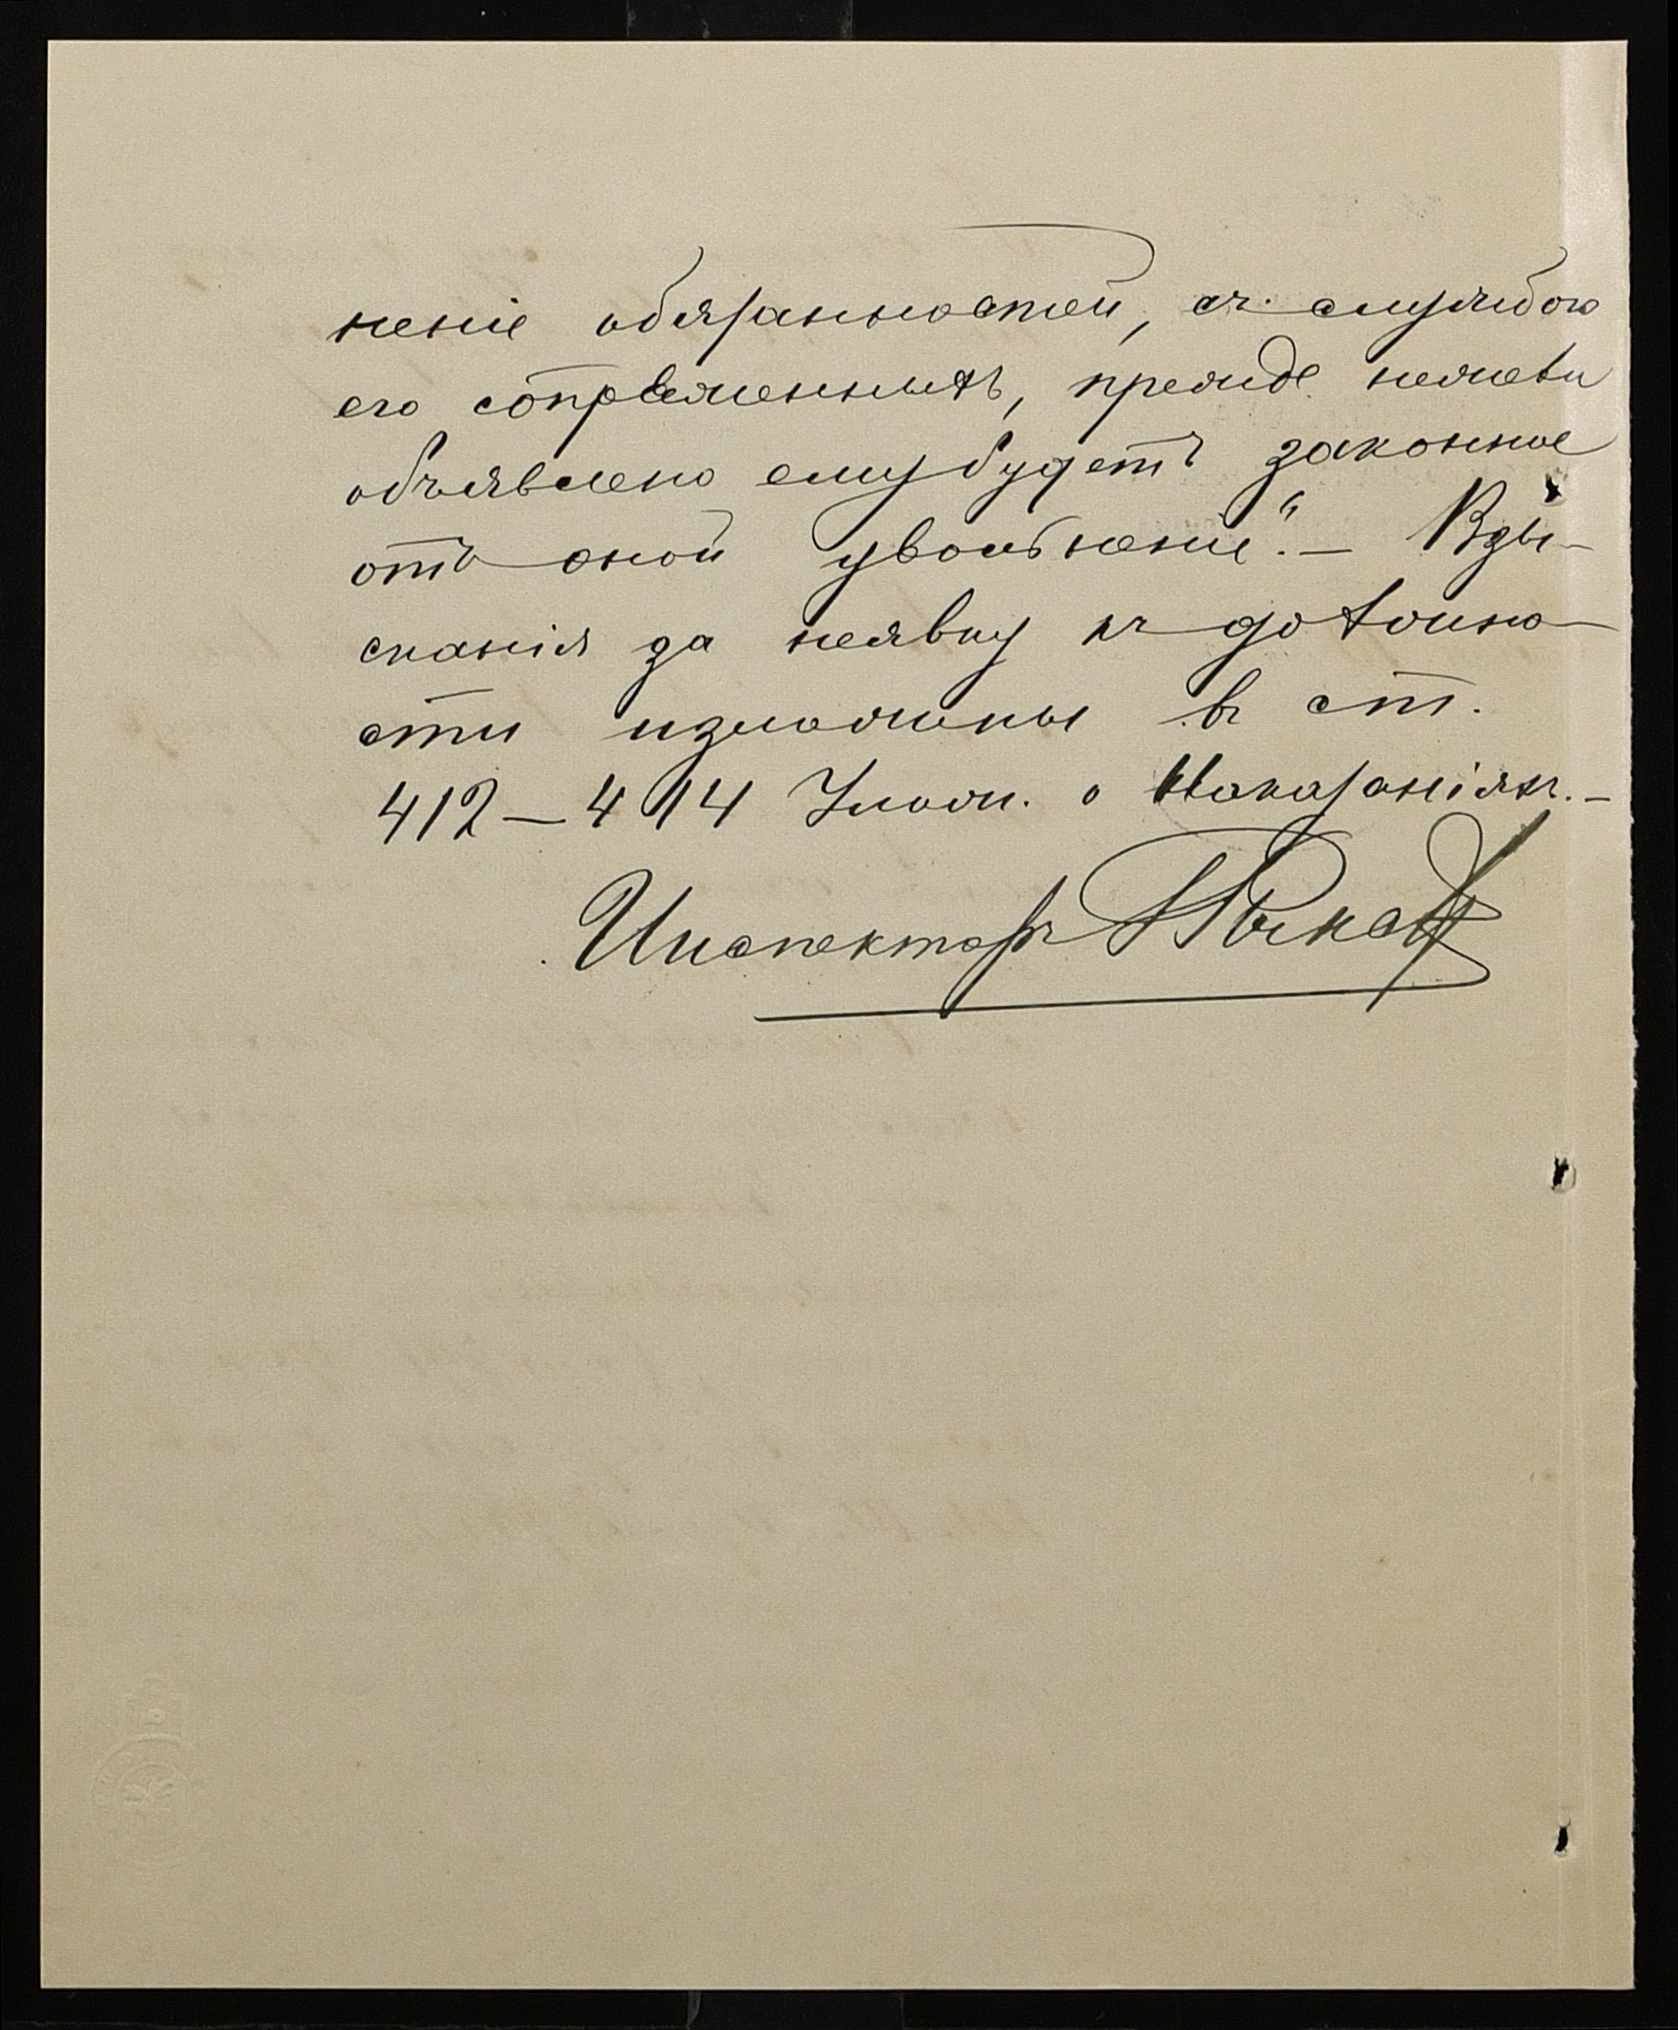 неніе обязанностей, съ службою
его сопряженныхъ, прежде нежели
объявлено ему будетъ законное
отъ оной увольненіе". — Взы-
сканія за неявку къ должно-
сти изложены въ ст.
412 — 414 Улож. о Наказаніяхъ. —
Инспекторъ